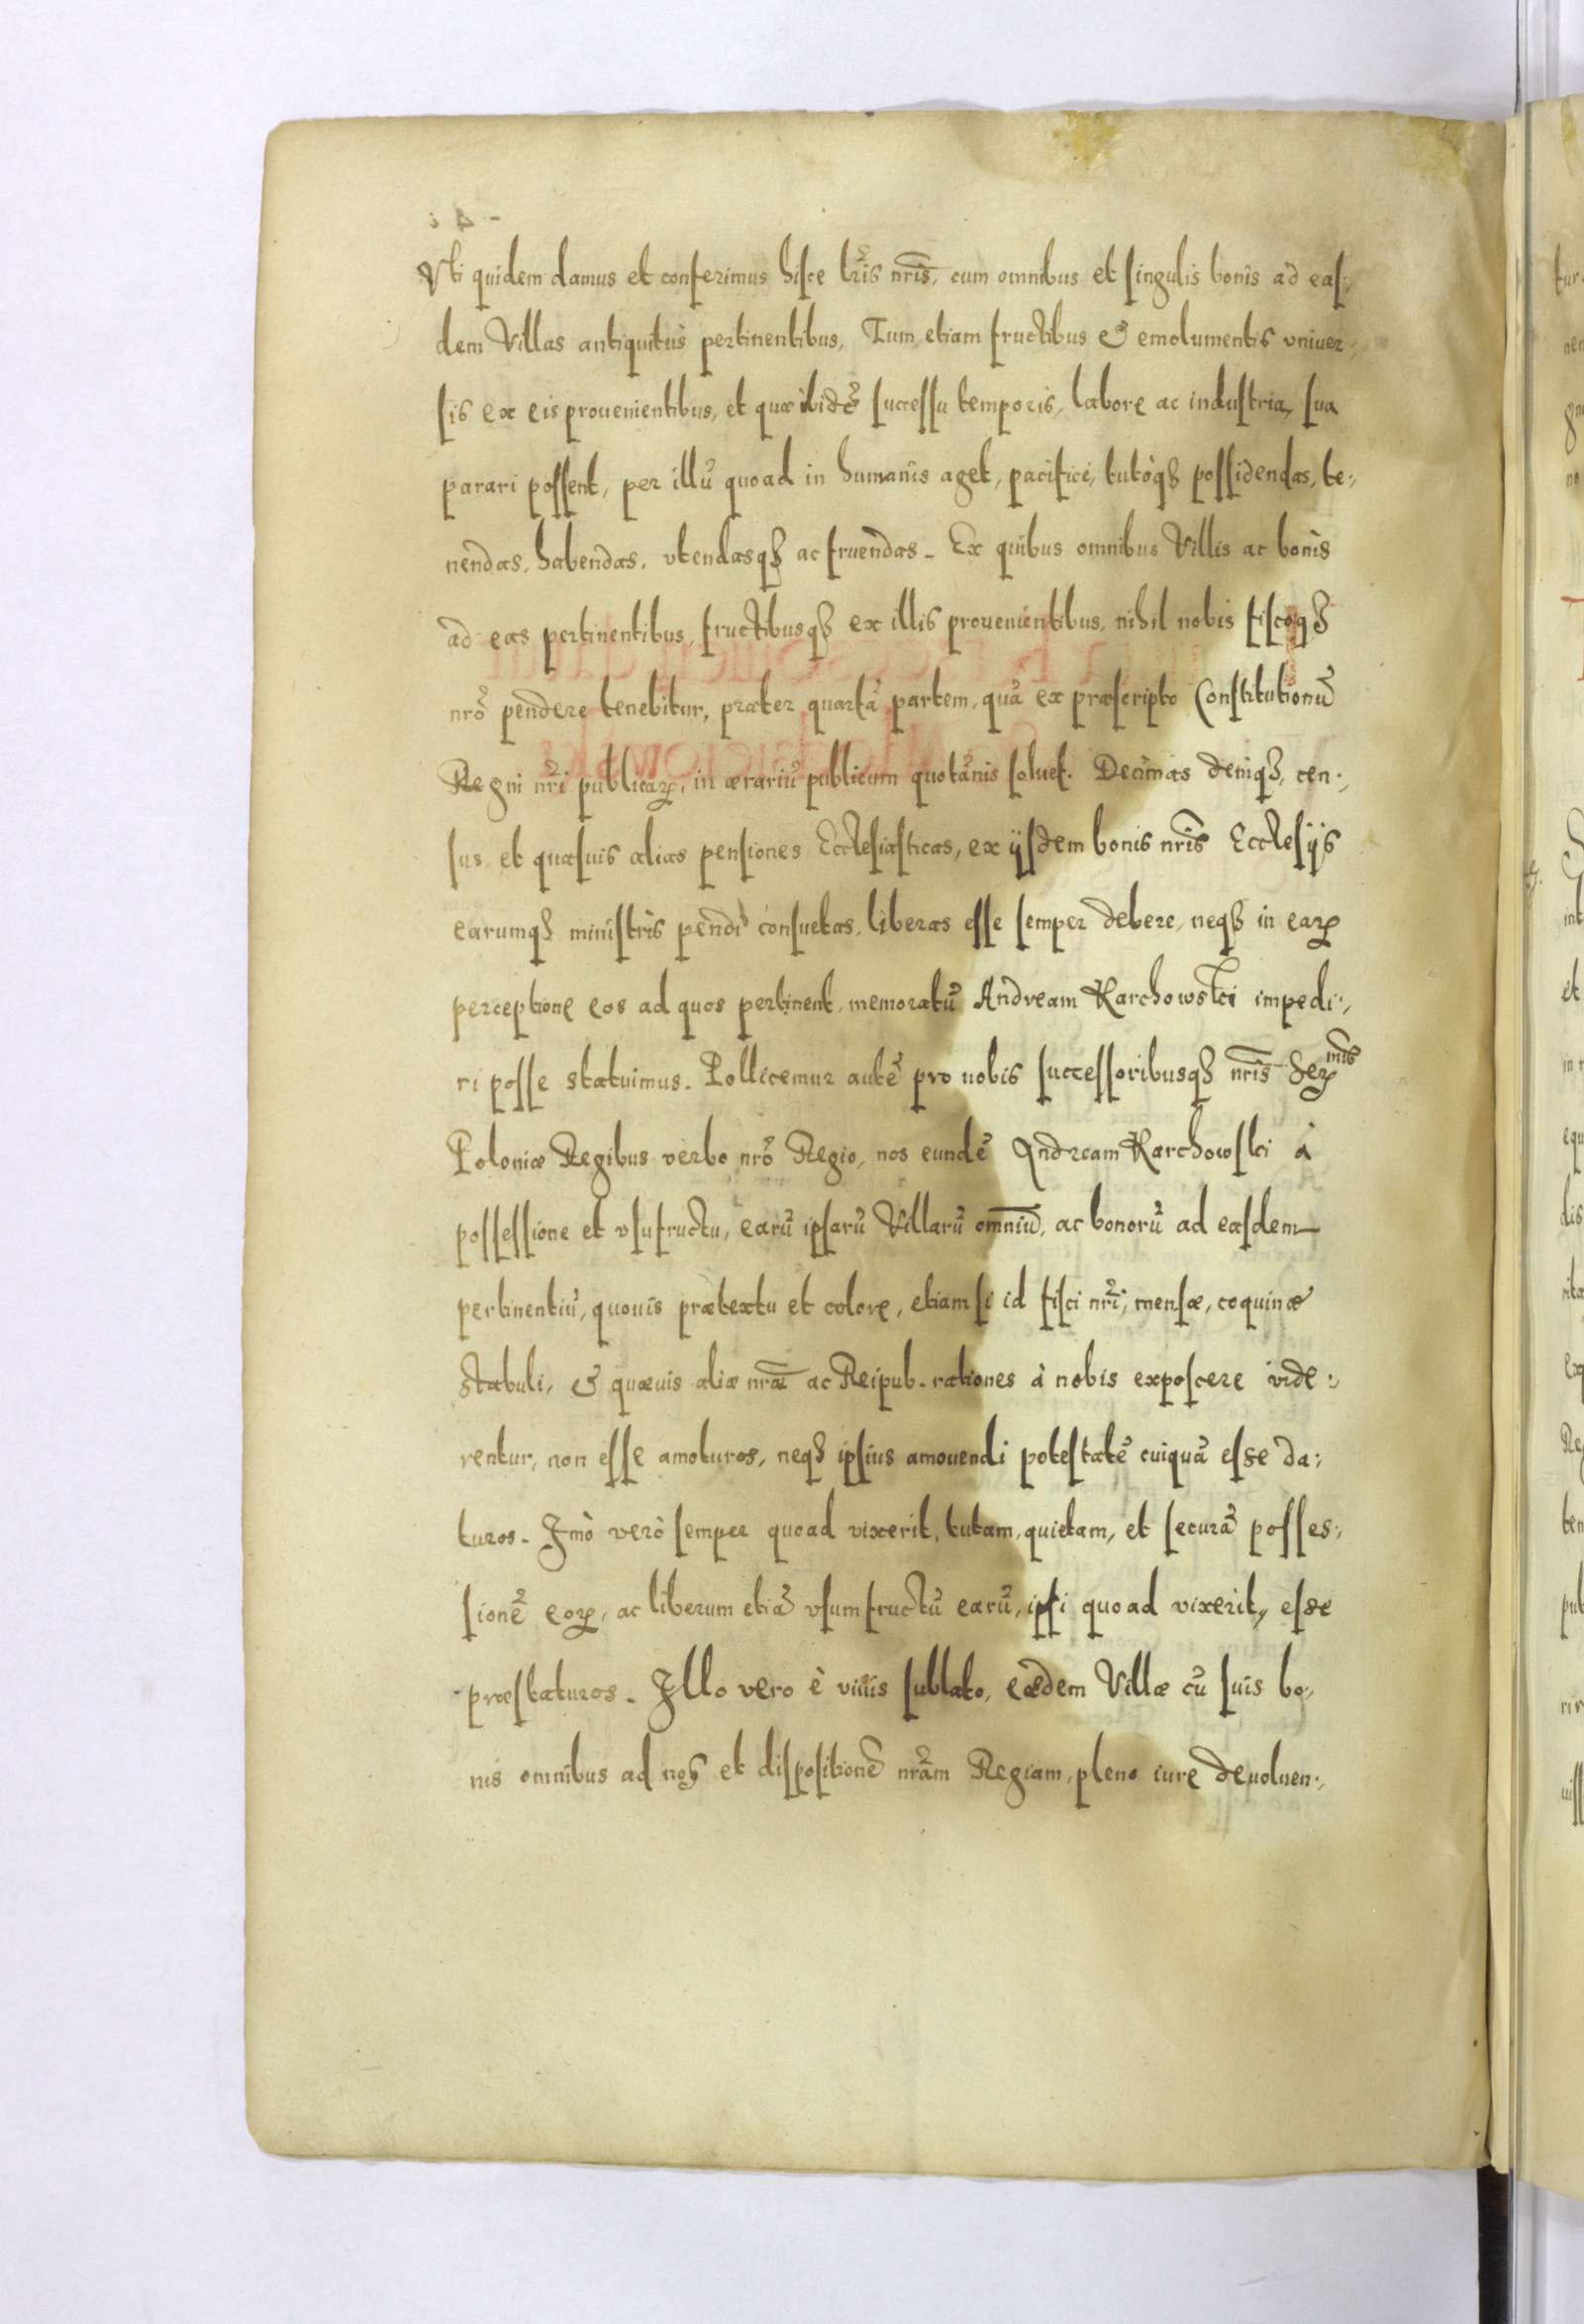 Vti quidem damus et conferimus hisce lr̃is nr̃is, cum omnibus et singulis bonis ad eas:,
dem Villas antiquitùs pertinentibus, Tum etiam fructibus & emolumentis vniuer:,
sis ex eis prouenientibus, et quæ ibidẽ successu temporis, labore ac industria, sua
parari possent, per illũ quoad in humanis aget, pacificè, tutòqȝ possidendas, te:,
nendas, habendas, vtendasqȝ ac fruendas. Ex quibus omnibus Villis ac bonis
ad eas pertinentibus, fructibusqȝ ex illis prouenientibus, nihil nobis fiscoqȝ
nrõ pendere tenebitur, præter quartã partem, quã ex præscripto Constitutionũ
Regni nr̃i publicaꝝ, in ærariũ publicum quotãnis soluet. Decimas deniqȝ, cen:,
sus, et quæsuis alias pensiones Ecclesiasticas, ex ijsdem bonis nr̃is Ecclesijs
earumqȝ ministris pendi consuetas, liberas esse semper debere, neqȝ in eaꝝ
perceptione eos ad quos pertinent, memoratũ Andream Karchowski impedi:,
ri posse statuimus. Pollicemur autẽ pro nobis successoribusqȝ nr̃is Serᵐⁱˢ
Poloniæ Regibus verbo nrõ Regio, nos eundẽ Andream Karchowski à
possessione et vsufructu, earũ ipsarũ Villarũ omniũ, ac bonorũ ad easdem
pertinentiũ, quouis prætextu et colore, etiam si id fisci nr̃i, mensæ, coquinæ
stabuli, & quæuis aliæ nræ̃ ac Reipub. rationes à nobis exposcere vide:,
rentur, non esse amoturos, neqȝ ipsius amouendi potestatẽ cuiquã esse da:
turos. Imò verò semper quoad vixerit, tutam, quietam, et securã posses:,
sionẽ eoꝝ, ac liberum etiã vsumfructũ earũ, ipsi quoad vixerit, esse
præstaturos. Illo vero è viuis sublato, eædem Villæ cũ suis bo:,
nis omnibus ad nos et dispositionẽ nrãm Regiam, pleno iure deuoluen:,